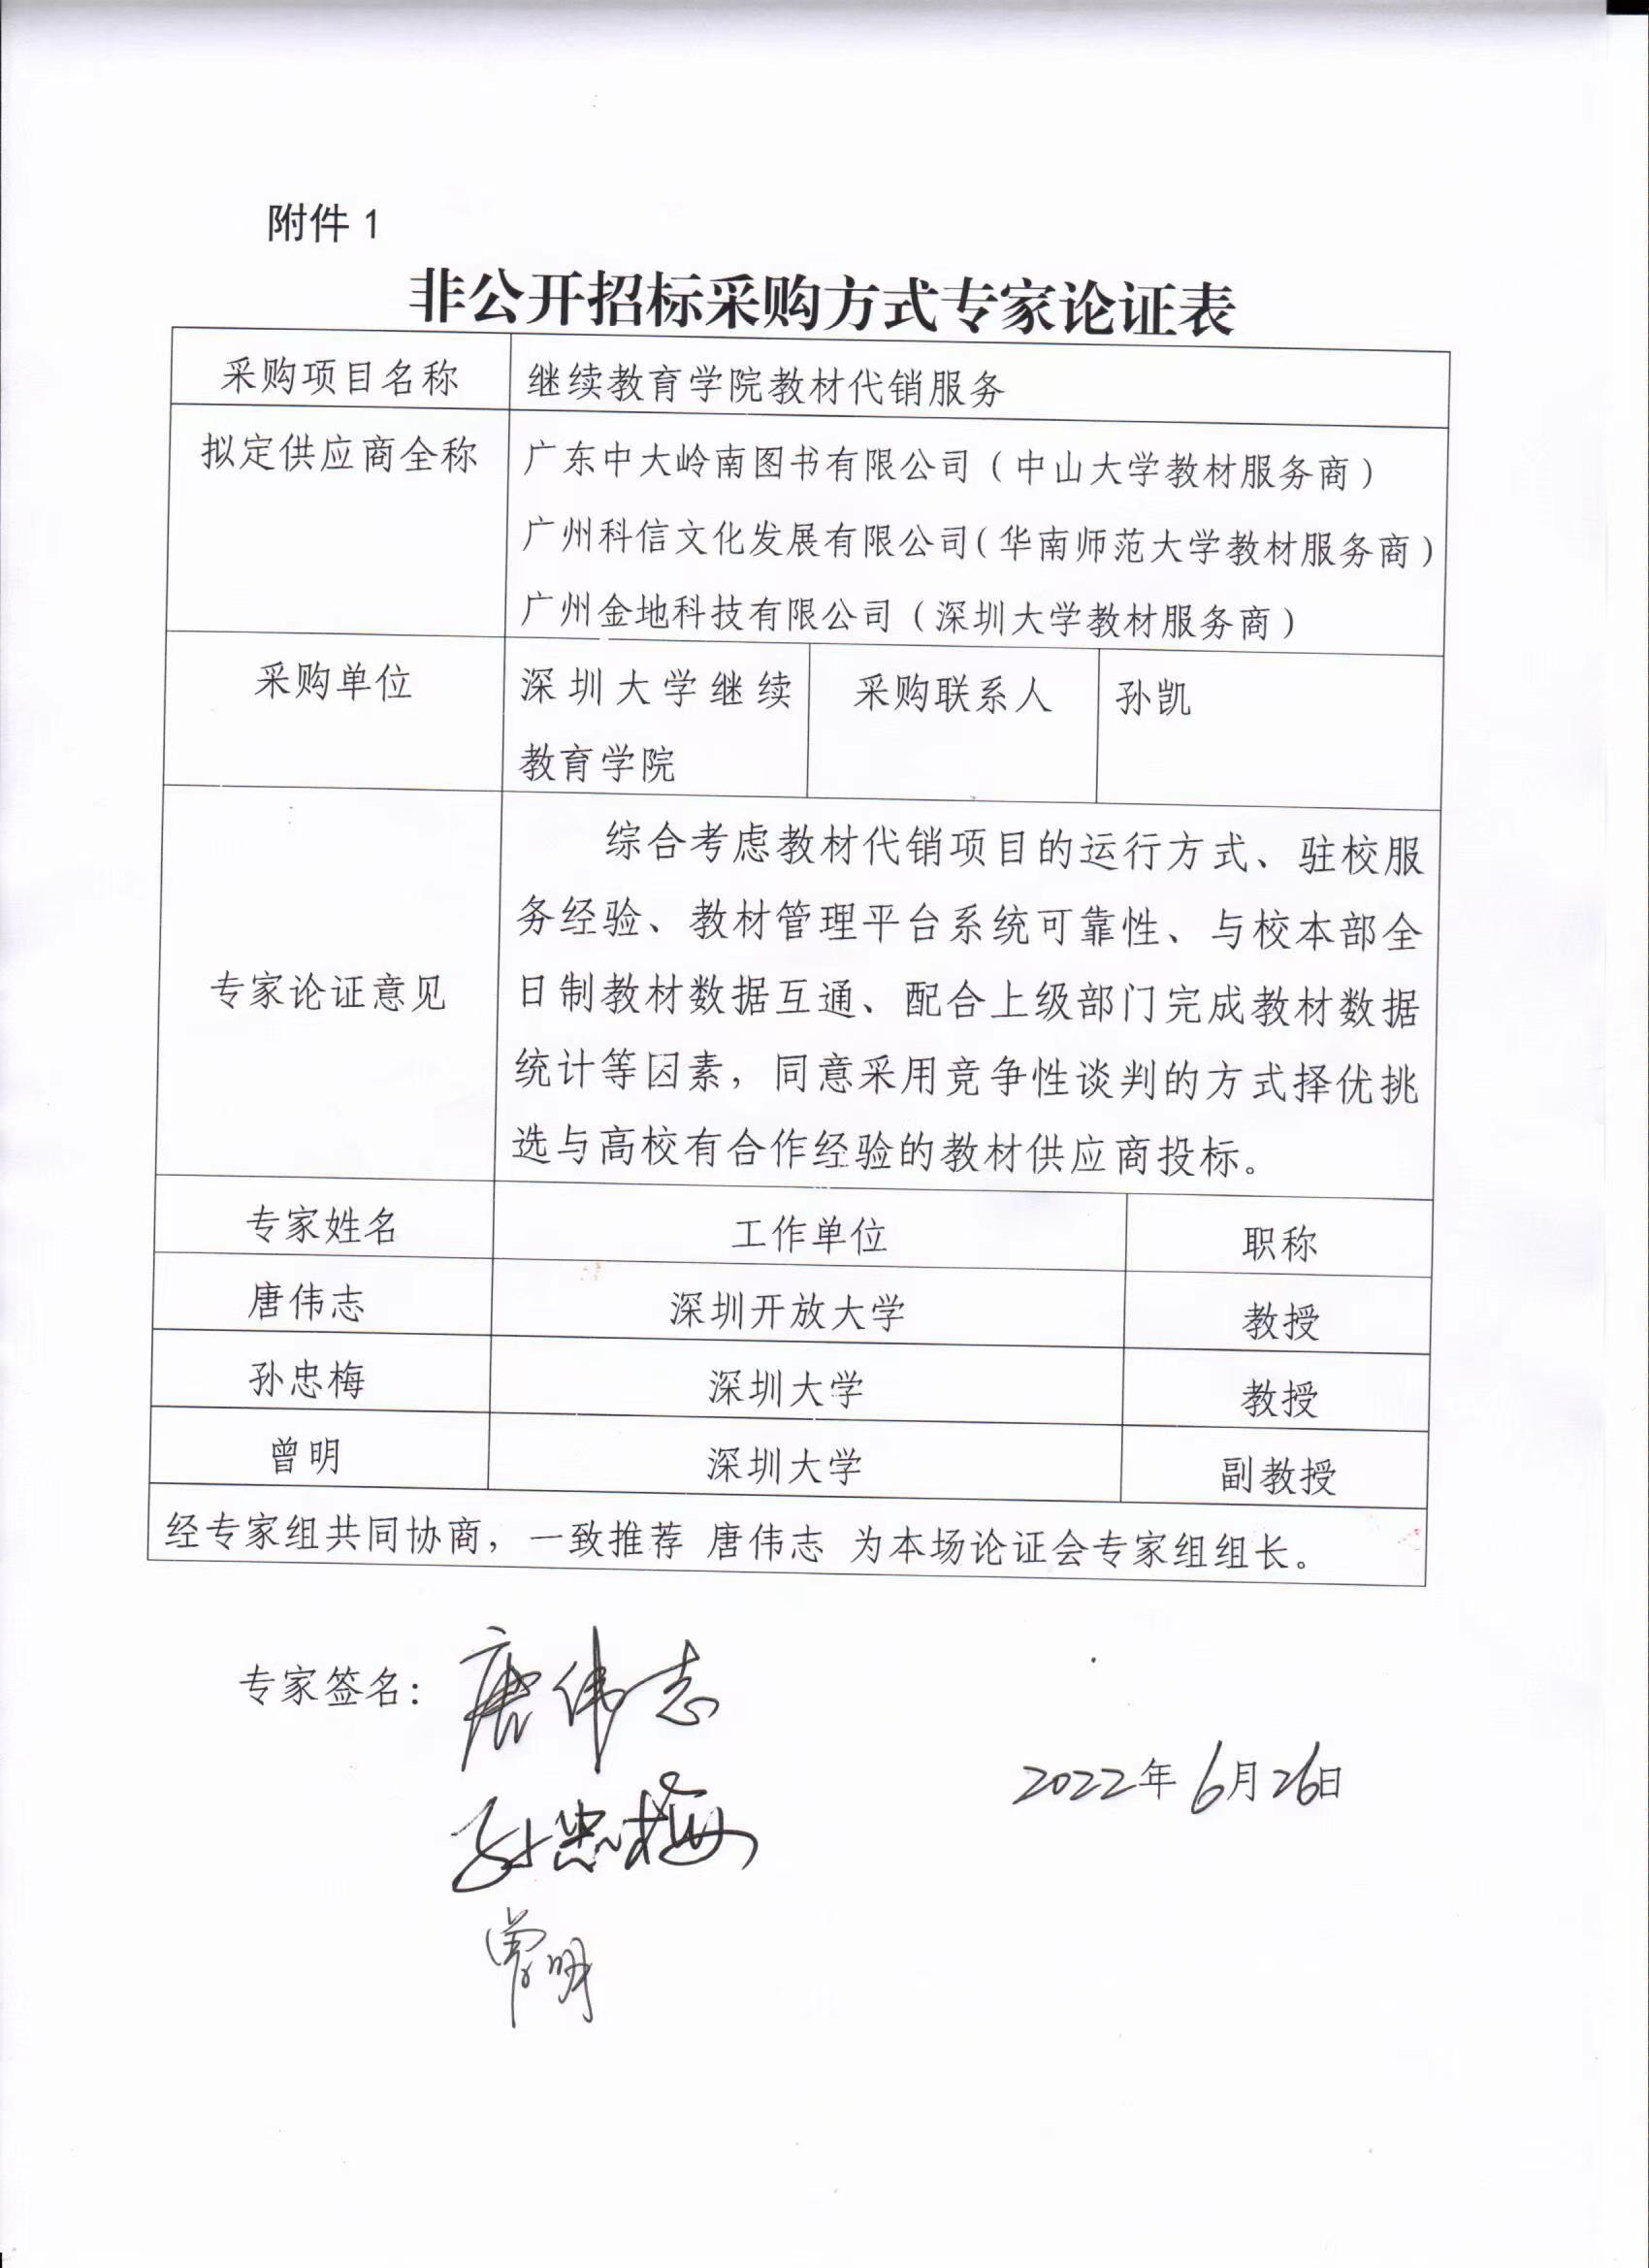 附件 1
非公开招标采购方式专家论证表
采购项目名称 继续教育学院教材代销服务
拟定供应商全称 广东中大岭南图书有限公司（中山大学教材服务商）
广州科信文化发展有限公司（华南师范大学教材服务商）
广州金地科技有限公司（深圳大学教材服务商）
采购单位 深圳大学继续 采购联系人 孙凯
教育学院
综合考虑教材代销项目的运行方式、驻校服
务经验、教材管理平台系统可靠性、与校本部全
专家论证意见 日制教材数据互通、配合上级部门完成教材数据
统计等因素，同意采用竞争性谈判的方式择优挑
选与高校有合作经验的教材供应商投标。
专家姓名 工作单位 职称
唐伟志 深圳开放大学 教授
孙忠梅 深圳大学 教授
曾明 深圳大学 副教授
经专家组共同协商，一致推荐 唐伟志 为本场论证会专家组组长。
专家签名：唐伟志
孙忠梅
曾明
2022年6月26日